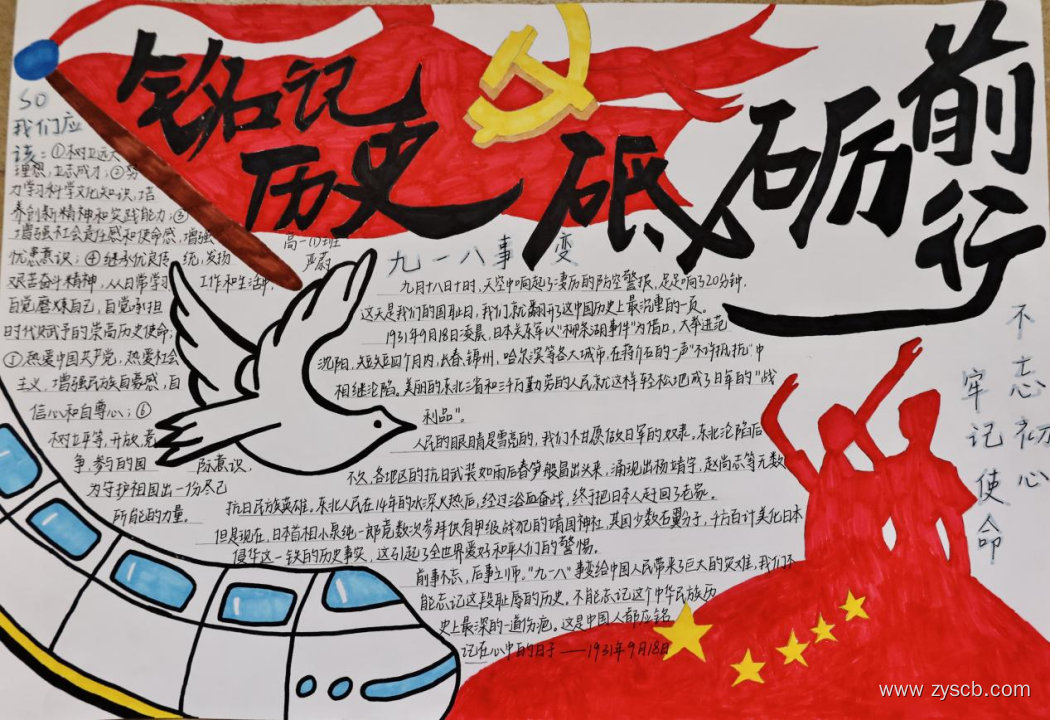 铭记
历史
砥砺
前行
SO
我们应
该：①树立远大
理想，立志成才；②努
力学习科学文化知识，培
养创新精神和实践能力；③
增强社会责任感和使命感，增强
忧患意识；④继承优良传统，发扬
艰苦奋斗精神，从日常学习工作和生活中，
自觉磨炼自己，自觉承担
时代赋予的崇高历史使命；
①热爱中国共产党，热爱社会
主义，增强民族自尊感，自
信心和自尊心；⑥
树立平等，开放，竞
争，参与的国际意识，
为守护祖国出一份尽己
所能的力量。
高一(1)班
严蔚
九一八事变
九月十八日十时，天空中响起了凄厉的防空警报，足足响了20分钟，
这天是我们的国耻日，我们就翻开了这中国历史上最沉重的一页。
1931年9月18日凌晨，日本关东军以“柳条湖事件”为借口，大举进范
沈阳，短短四个月内，长春，锦州，哈尔滨等各大城市，在蒋介石的一声“不许抵抗”中
相继沦陷。美丽的东北三省和三千万勤劳的人民就这样轻松地成了日军的“战
利品”。
人民的眼睛是雪亮的，我们不甘愿做日军的奴隶。东北沦陷后
不久，各地区的抗日武装如雨后春笋般冒出头来，涌现出杨靖宇，赵尚志等无数
抗日民族英雄。东北人民在14年的水深火热后，经过浴血奋战，终于把日本人赶回了老家。
但是现在，日本首相小泉纯一郎竟数次参拜供有甲级战犯的靖国神社，其国少数右翼分子，千方百计美化日本
侵华这一铁的历史事实，这引起了全世界爱好和平人们的警惕。
前事不忘，后事之师。“九一八”事变给中国人民带来了巨大的灾难，我们不
能忘记这段耻辱的历史。不能忘记这个中华民族历
史上最深的一道伤疤。这是中国人都应铭
记在心中的日子——1931年9月18日
不忘初心
牢记使命
www.zyscb.com